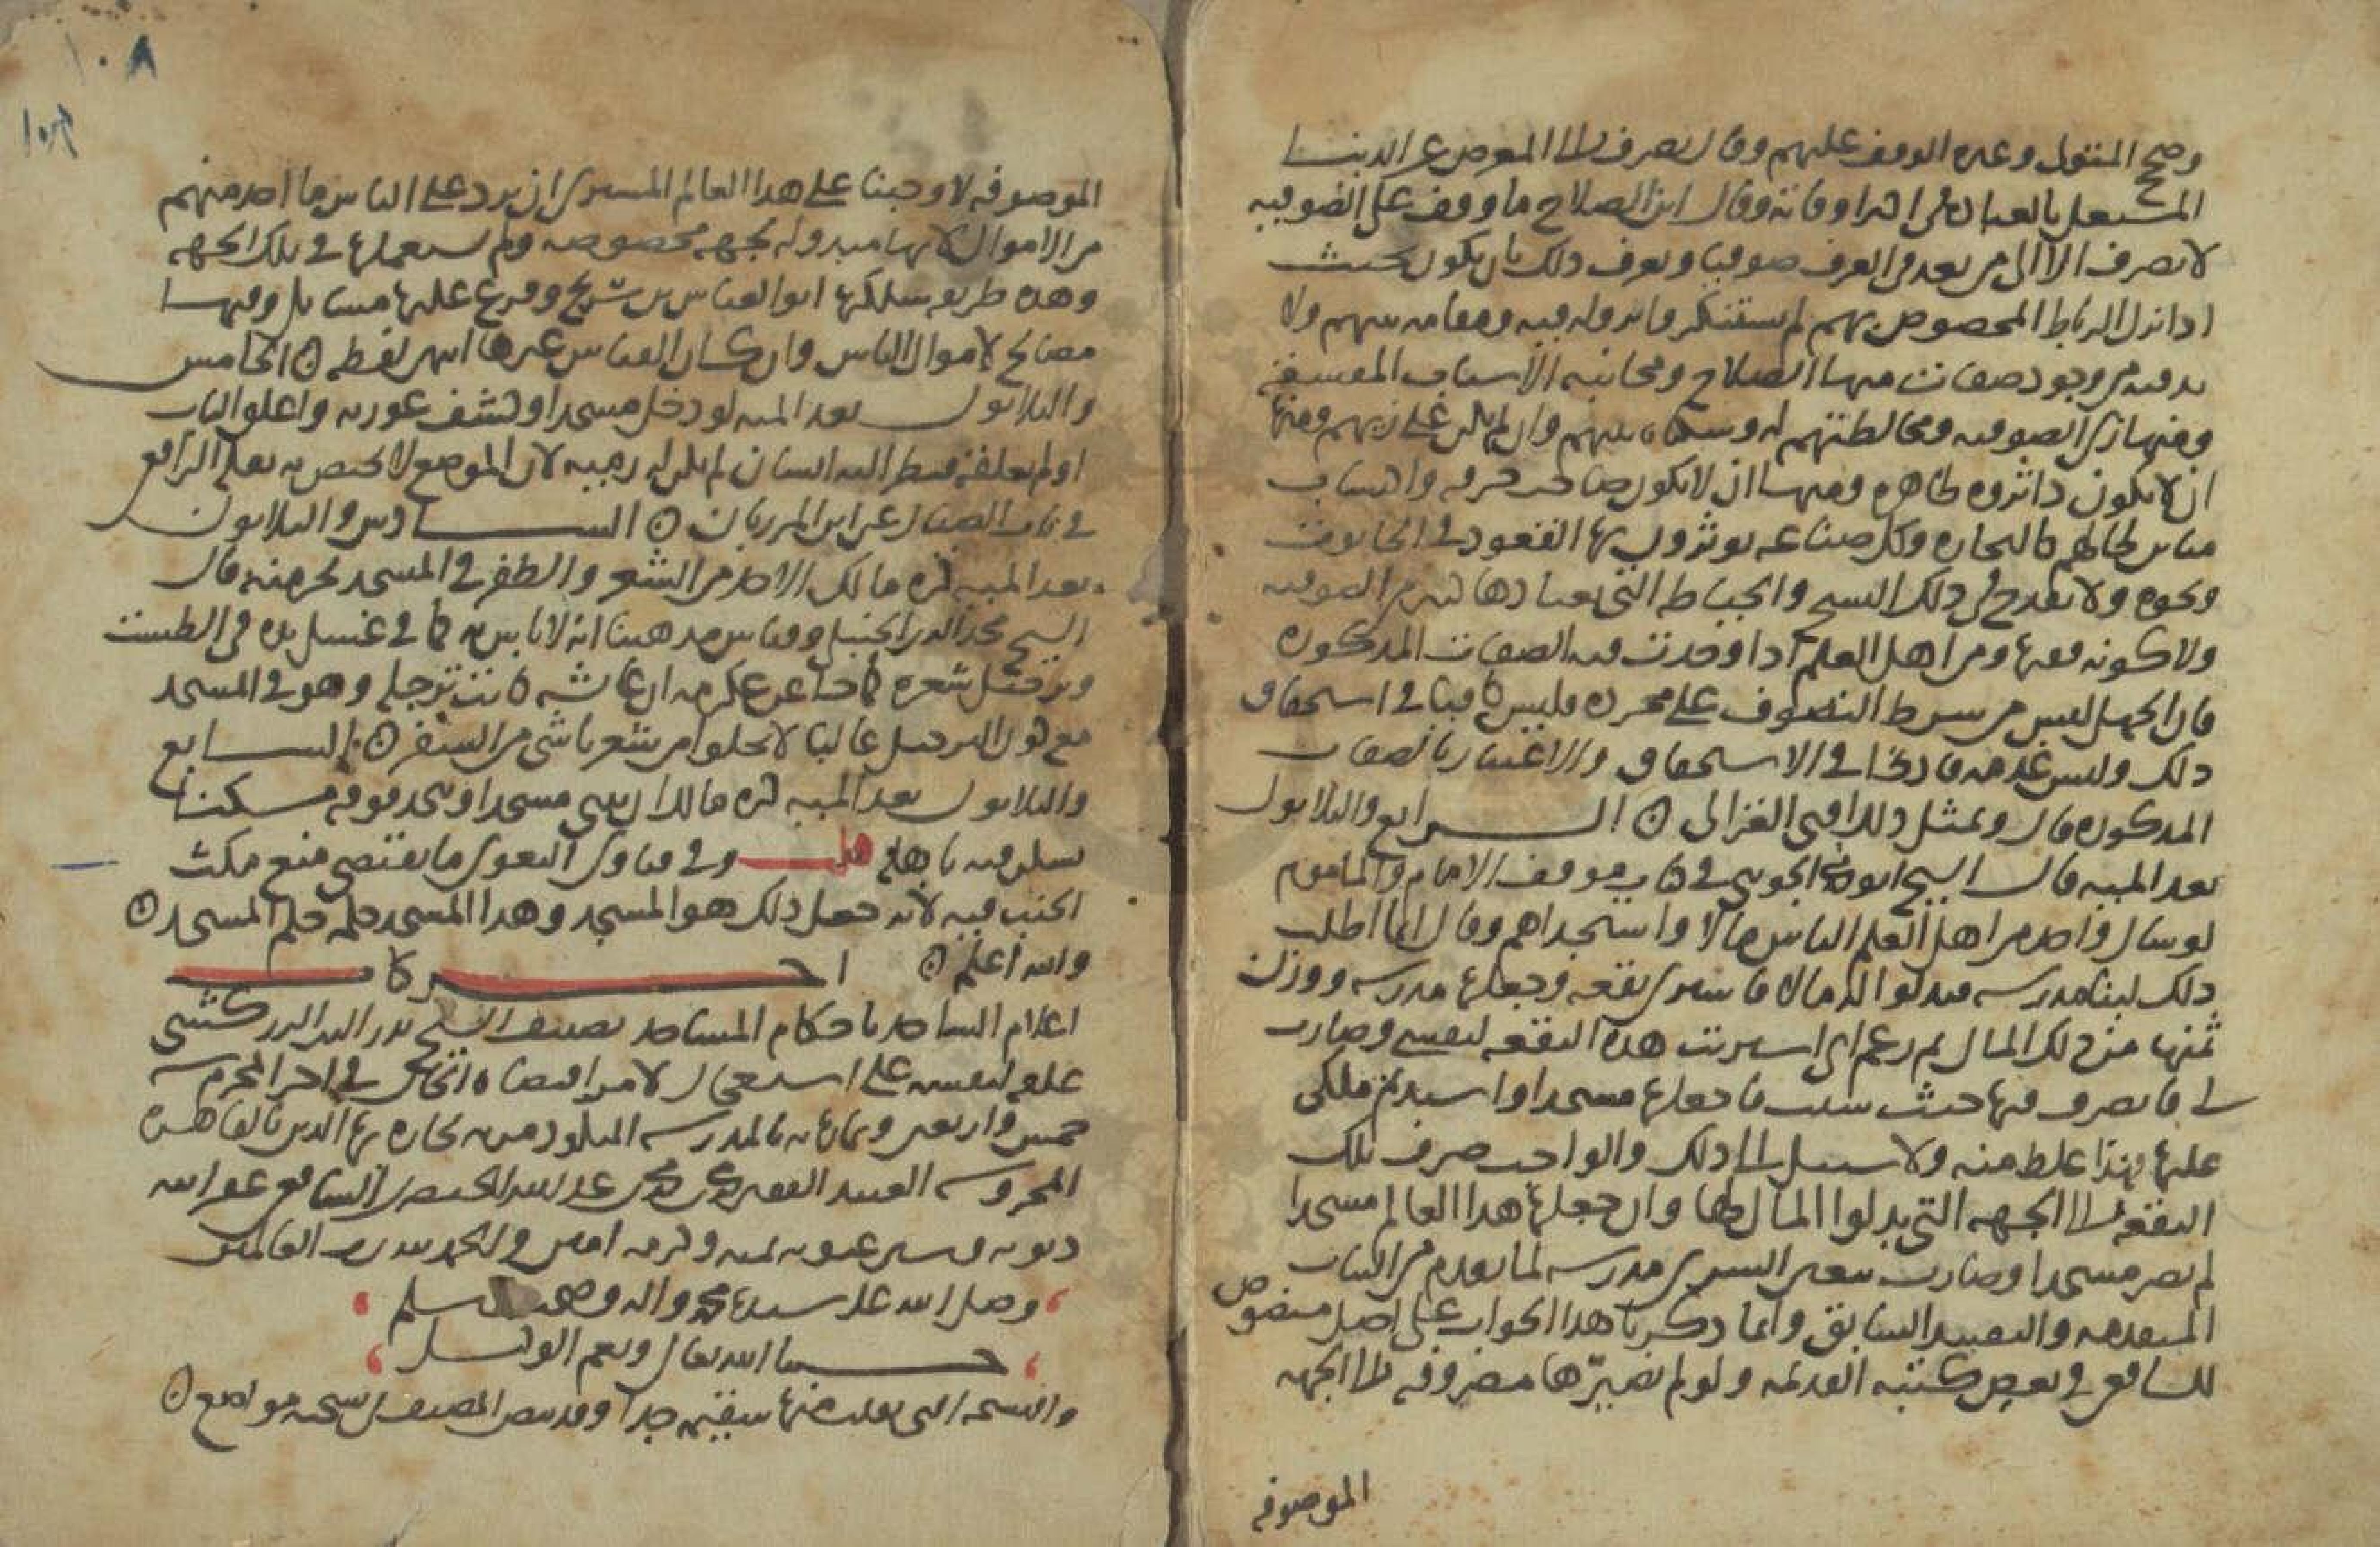 وصحح المتولي وغيره الوقف عليهم وقال يصرف الى المعرض عن الدنيا
المشتغل بالعبادة في اكثر اوقاته وقال ابن الصلاح ما وقف على الصوفية
لا يصرف الا الى من يعد في العرف صوفيا ويعرف ذلك بان يكون بحيث
اذا نزل الرباط المخصوص بهم لم يستنكر فانزوله فيه ومقامه بينهم ولا
بد فيه من وجود صفات منها الصلاح ومجانبة الاسباب المفسقة
ومنها زي الصوفية ومخالطتهم له وسكناه بينهم وان لم يكن على زيهم ومنها
ان لا يكون ذا ثروة ظاهرة ومنها ان لا يكون صاحب حرفة واكتساب
مباين لحالهم كالتجارة وكل صناعة يوثرون بها القعود في الحانوت
ونحوه ولا يقدح في ذلك النسج والخياطة التي يعتادها كثير من الصوفية
ولا كونه فقيها ومن اهل العلم اذا وجدت فيه الصفات المذكورة
فان الجهل ليس من شرط التصوف على مجرده فليس كافيا في استحقاق
ذلك وليس عدمه قادحا في الاستحقاق والاعتبار بالصفات
المذكورة قال وبمثل ذلك افتى الغزالي ۞ الرابع والثلاثون
بعد المية قال الشيخ ابو محمد الجويني في كتاب موقف الامام والماموم
لو سال واحد من اهل العلم الناس مالا واستجداهم وقال انما اطلب
ذلك لبنا مدرسة فبذلوا له مالا فاشترى بقعة وجعلها مدرسة ووزن
ثمنها من ذلك المال ثم زعم اني اشتريت هذه البقعة لنفسي وصارت
لي فاتصرف فيها حيث شئت فاجعلها مسجدا واستديم ملكي
عليها فهذا غلط منه ولا سبيل الى ذلك والواجب صرف تلك
البقعة الى الجهة التي بذلوا المال لها وان جعلها هذا العالم مسجدا
لم تصر مسجدا وصارت بنفس الشرى مدرسة لما تقدم من النيات
المتقدمة والتقييد السابق وانما ذكرنا هذا الجواب على اصل منصوص
للشافعي في بعض كتبه القديمة ولو لم نصيرها مصروفة الى الجهة
الموصوفة
١٠٨
الموصوفة لاوجبنا على هذا العالم المشتري ان يرد على الناس ما اخذ منهم
من الاموال لانها مبذولة بجهة مخصوصة ولم يستعملها في تلك الجهة
وهذه طريقة سلكها ابو العباس بن سريج وفرع عليها مسايل وفيها
مصالح لاموال الناس وان كان القياس غيرها انتهى لفظه ۞ الخامس
والثلاثون بعد المية لو دخل مسجدا وكشف عورته واغلق الباب
او لم يغلقه فنظر اليه انسان لم يكن له رميه لان الموضع لا يختص به نقله الرافعي
في باب الصيال عن ابن المرزبان ۞ السادس والثلاثون
بعد المية كره مالك الاخذ من الشعر والظفر في المسجد نحر منه قال
الشيخ مجد الدين الحنبلي وقياس مذهبنا انه لا باس به كما في غسل يده في الطست
وترجيل شعره كما جا عن عكرمة ان عايشة كانت ترجله وهو في المسجد
مع كون الترجيل غالبا لا يخلوا من شعر ناشي من السفر ۞ السابع
والثلاثون بعد المية كره مالك ان يبني مسجدا ويتخذ فوقه مسكنا
يسكن فيه باهله قلت وفي فتاوى البغوي ما يقتضي منع مكث
الجنب فيه لانه جعل ذلك هو المسجد وهذا المسجد حكمه حكم المسجد ۞
والله اعلم ۞ اخر كتاب
اعلام الساجد باحكام المساجد تصنيف الشيخ بدر الدين الزركشي
علقه لنفسه على استعجال لامر اقتضاه الحال في اخر المحرم سنة
خمس واربعين وثمانمايه بالمدرسة بحارة بها الدين بالقاهرة
المحروسة العبد الفقير محمد بن محمد بن عبد الله الخيضري الشافعي غفر الله
ذنوبه وستر عيوبه بمنه وكرمه امين والحمد لله رب العالمين
وصلى الله على سيدنا محمد واله وصحبه وسلم
حسبنا الله تعالى ونعم الوكيل
والنسخة التي نقلت منها سقيمة جدا وقد بيض المصنف في نسخته مواضع ۞